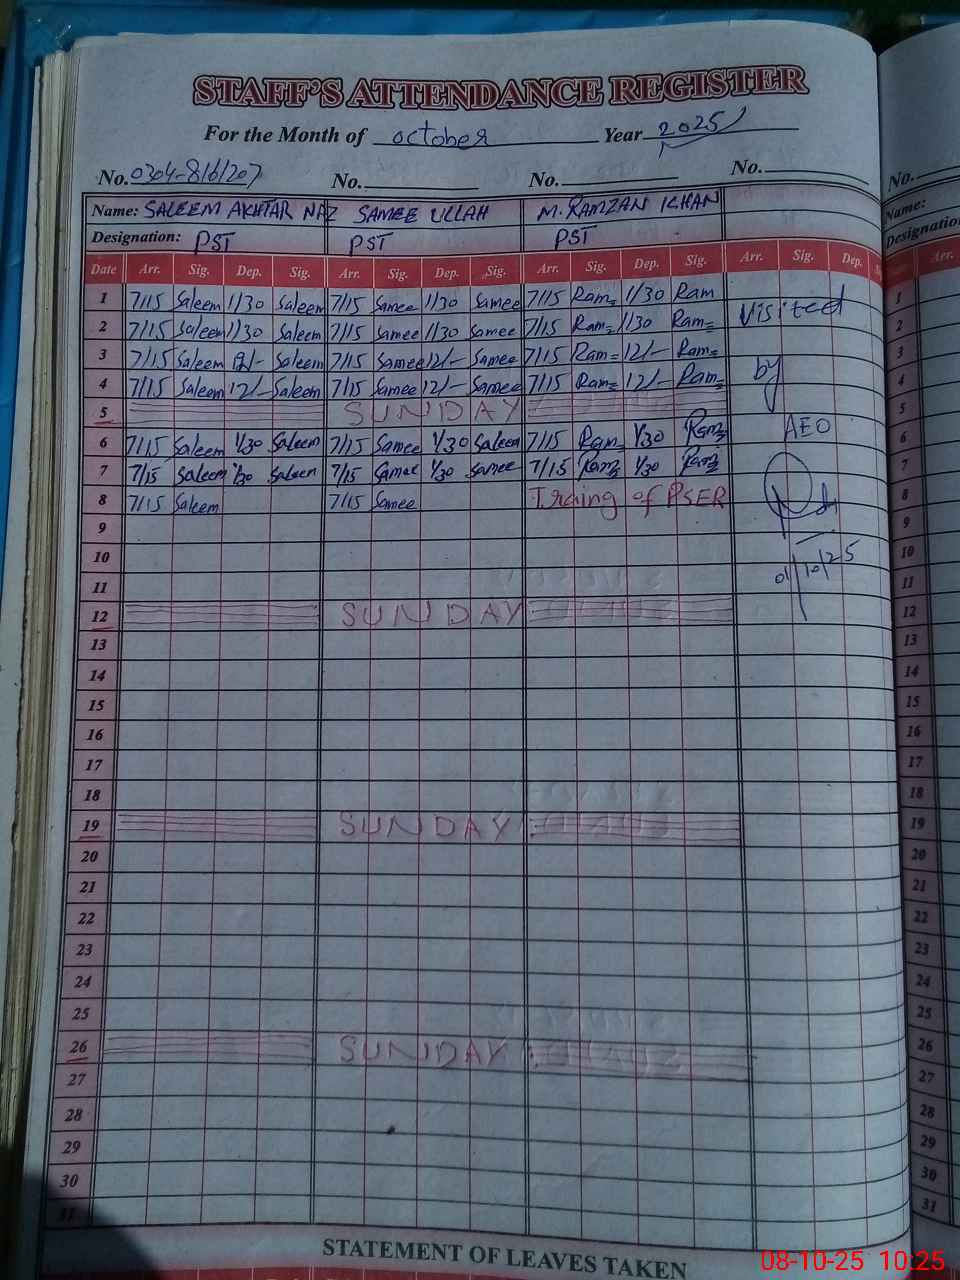 STAFF'S ATTENDANCE REGISTER
For the Month of october Year 2025
No. 0304-8161207 No. No. No. No.
Name: SALEEM AKHTAR NAZ SAMEE ULLAH M. RAMZAN KHAN Name:
Designation: PST PST PST Designation
Date Arr. Sig. Dep. Sig. Arr. Sig. Dep. Sig. Arr. Sig. Dep. Sig. Arr. Sig. Dep. Arr.
1 7/15 Saleem 1/30 Saleem 7/15 Samee 1/30 Samee 7/15 Ram 1/30 Ram Visited 1
2 7/15 Saleem 1/30 Saleem 7/15 Samee 1/30 Samee 7/15 Ram 1/30 Ram 2
3 7/15 Saleem 12/- Saleem 7/15 Samee 12/- Samee 7/15 Ram 12/- Ram by 3
4 7/15 Saleem 12/- Saleem 7/15 Samee 12/- Samee 7/15 Ram 12/- Ram 4
5 SUNDAY 5
6 7/15 Saleem 1/30 Saleem 7/15 Samee 1/30 Saleem 7/15 Ram 1/30 Ram AEO 6
7 7/15 Saleem 1/30 Saleem 7/15 Samee 1/30 Samee 7/15 Ram 1/30 Ram 7
8 7/15 Saleem 7/15 Samee Traing of PSER 8
9 9
10 01/10/25 10
11 11
12 SUNDAY 12
13 13
14 14
15 15
16 16
17 17
18 18
19 SUNDAY 19
20 20
21 21
22 22
23 23
24 24
25 25
26 SUNDAY 26
27 27
28 28
29 29
30 30
31 31
STATEMENT OF LEAVES TAKEN
08-10-25 10:25